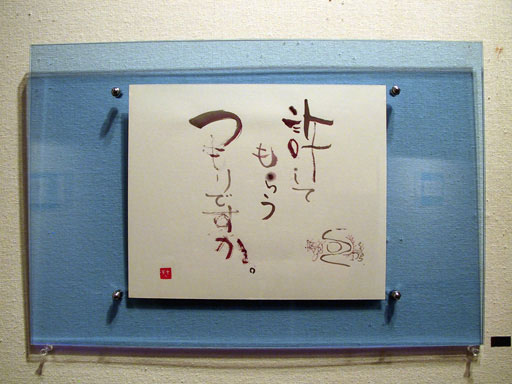 許して
もらう
つもりですか。